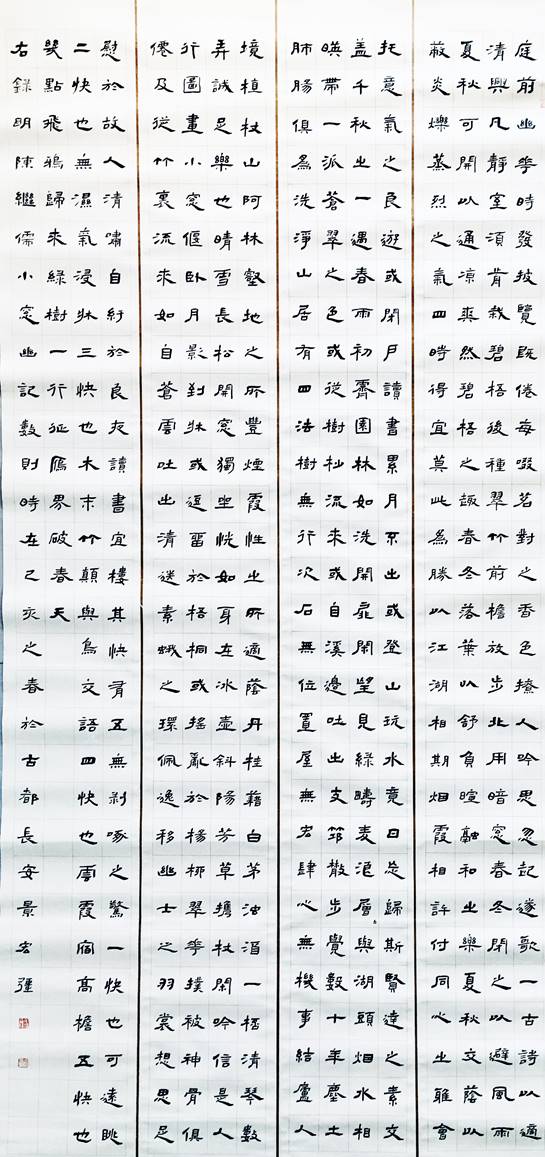 庭前幽華時發披覽既倦每啜茗對之香色撩人吟思忽記遂歌一古詩以適
清興凡靜室須前栽碧梧後種翠竹前檐放步北用暗窗春冬閉之以避風雨
夏秋可開以通涼爽然碧梧之趣春冬落葉以舒負暄融和之樂夏秋交蔭以
蔽炎爍蒸烈之氣四時得宜莫此為勝以江湖相期烟霞相許付同心之雅會
托意氣之良遊或閉戶讀書累月不出或登山玩水竟日忘歸斯賢達之素交
蓋千秋之一遇春雨初霽園林如洗開扉閒望見綠疇麥浪層與湖頭烟水相
暎帶一派蒼翠之色或從樹杪流來或自溪邊吐出支筇散步覺數十年塵土
肺腸俱為洗淨山居有四法樹無行次石無位置屋無宏肆心無機事結廬人
境植杖山阿林壑地之所豐煙霞性之所適蔭丹桂藉白茅濁酒一杯清琴數
弄誠足樂也晴雪長松開窗獨坐恍如身在冰壺斜陽芳草攜杖閒吟信是人
行圖畫小窗偃臥月影到牀或逗留於梧桐或搖亂於楊柳翠華撲被神骨俱
僊及從竹裏流來如自蒼雲吐出清送素蛾之環佩逸移幽士之羽裳想思足
慰於故人清嘯自紓於良夜讀書宜樓其快有五無剝啄之驚一快也可遠眺
二快也無濕氣浸牀三快也木末竹顛與鳥交語四快也雲霞宿高檐五快也
幾點飛鴉歸來綠樹一行征雁界破春天
右錄明陳繼儒小窗幽記數則時在己亥之春於古都長安景宏強